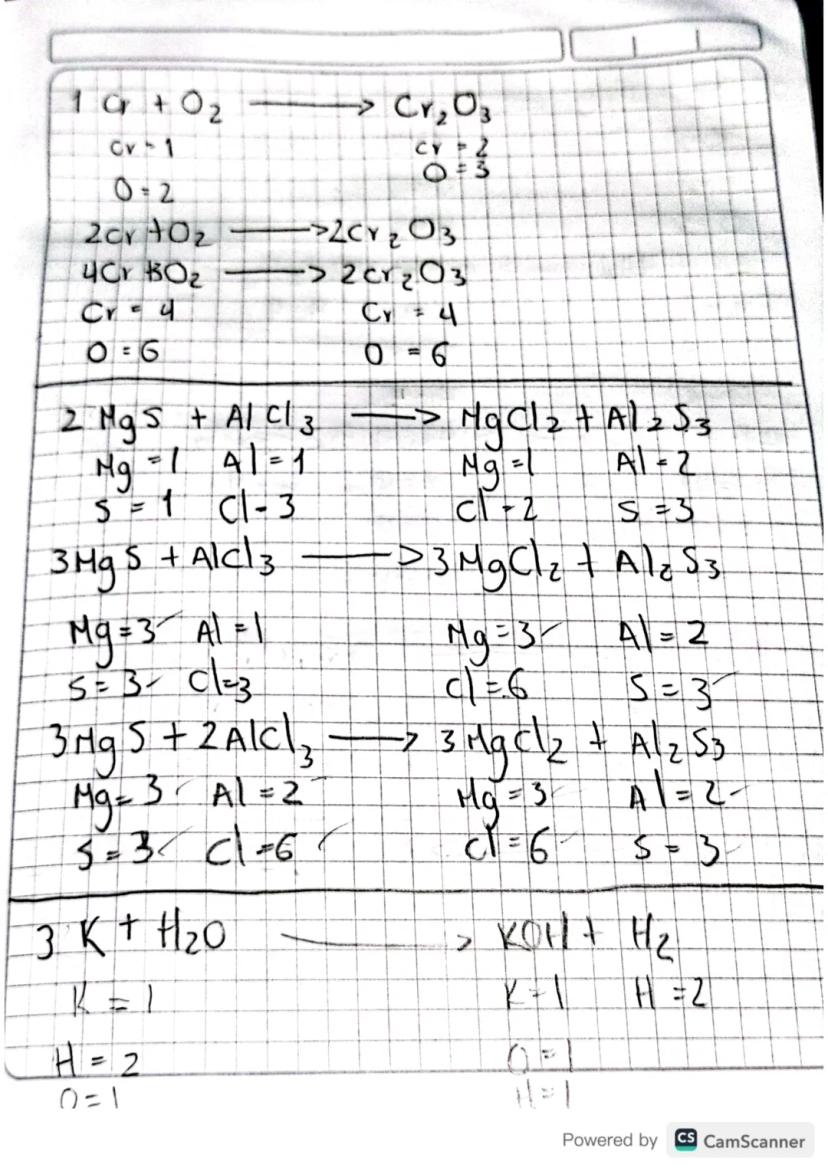 1 Cr + O2 ⟶ Cr2O3
Cr - 1 Cr = 2
O = 3
O = 2
2Cr + O2 ⟶ 2Cr2O3
4Cr + 3O2 ⟶ 2Cr2O3
Cr = 4 Cr = 4
O = 6 O = 6
2 MgS + AlCl3 ⟶ MgCl2 + Al2S3
Mg = 1 Al = 1 Mg = 1 Al = 2
S = 1 Cl - 3 Cl - 2 S = 3
3MgS + AlCl3 ⟶ 3MgCl2 + Al2S3
Mg = 3 Al = 1 Mg = 3 Al = 2
S = 3 Cl = 3 Cl = 6 S = 3
3MgS + 2AlCl3 ⟶ 3MgCl2 + Al2S3
Mg = 3 Al = 2 Mg = 3 Al = 2
S = 3 Cl = 6 Cl = 6 S = 3
3 K + H2O ⟶ KOH + H2
K = 1 K - 1 H = 2
H = 2 O = 1
O = 1 H = 1
Powered by CS CamScanner